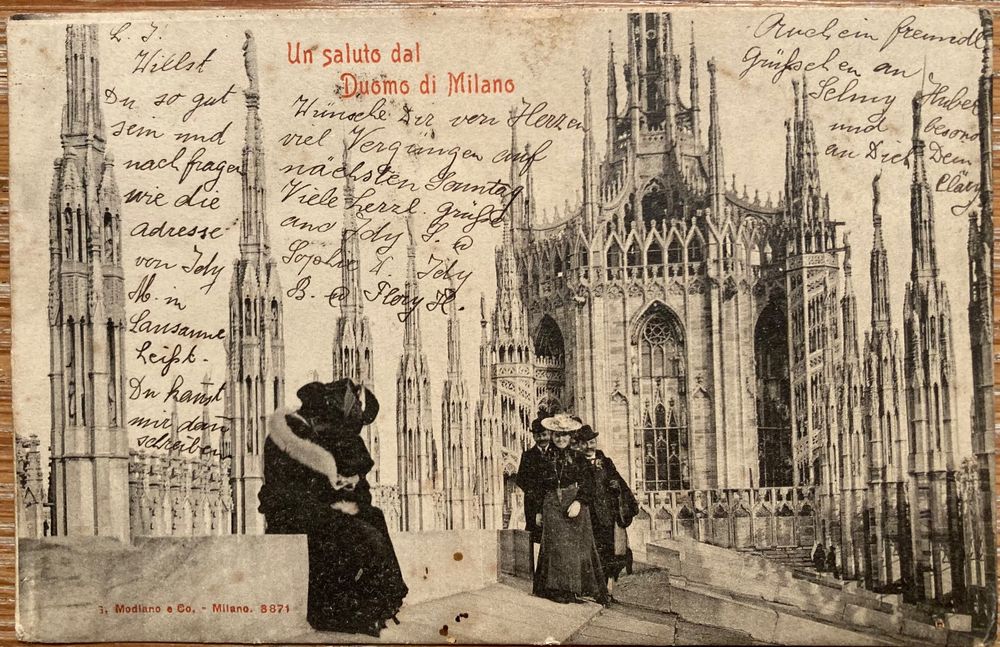 Un saluto dal
Duomo di Milano
L. I.
Willst
Du so gut
sein und
nachfragen
wie die
adresse
von Idy
M. in
Lausanne
heißt.
Du kanst
mir dan
schreiben
Wünsche Dir von Herzen
viel Vergüngen auf
nächsten Sonntag
Viele herzl. grüße
and Idy S. @
Sophie L. Idy
B. @ Flory H.
Auch ein freundl
Grüßchen an
Selmy Huber
und besond
an Dich Dem
Cläry
G. Modiano e Co. - Milano. 8871